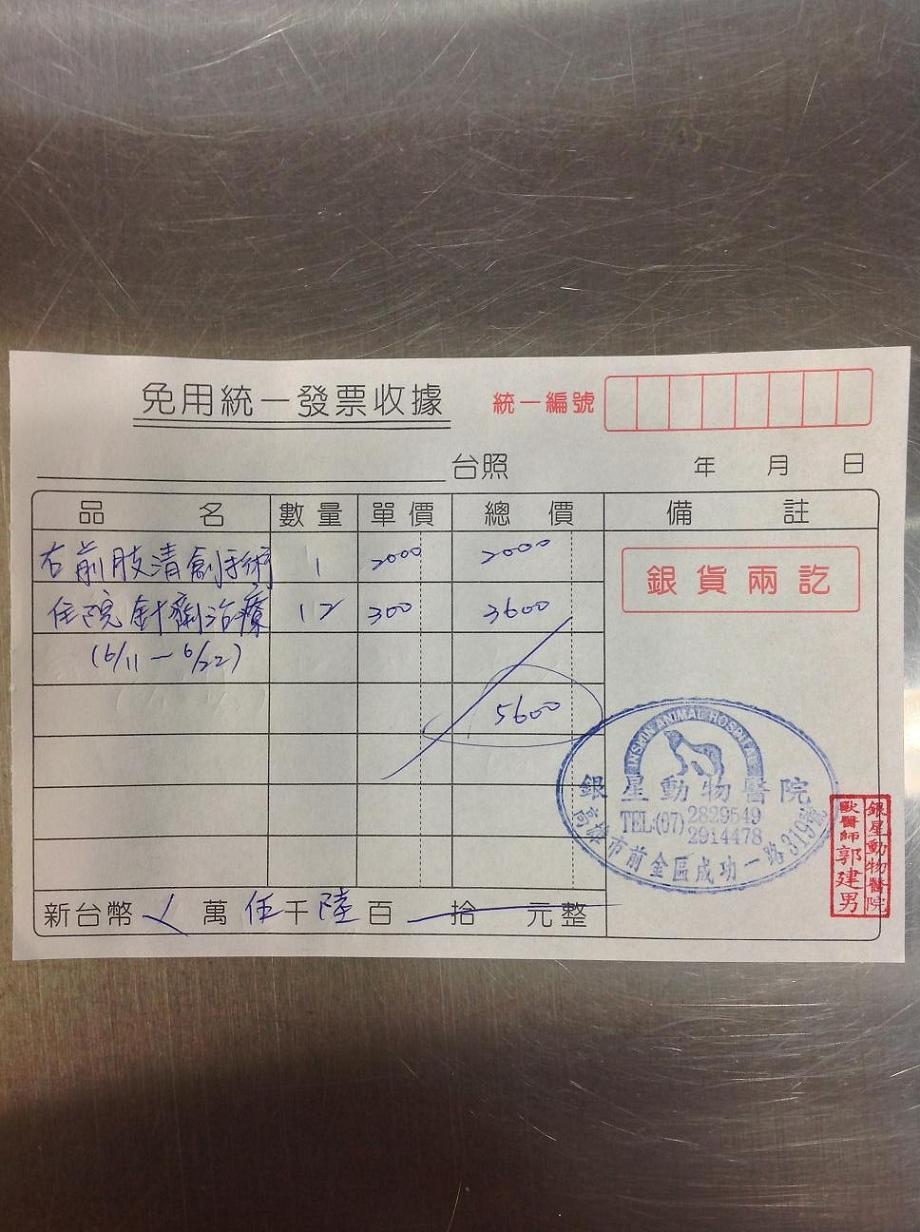 免用統一發票收據
統一編號
台照 年 月 日
品名 數量 單價 總價 備註
右前肢清創手術 1 2000 2000
住院針劑治療 12 300 3600
(6/11-6/22)
5600
銀貨兩訖
INSHIN ANIMAL HOSPITAL
銀星動物醫院
TEL:(07) 2829549
2914478
高雄市前金區成功一路319號
銀星動物醫院
獸醫師郭建男
新台幣 萬 伍千陸百 拾 元整